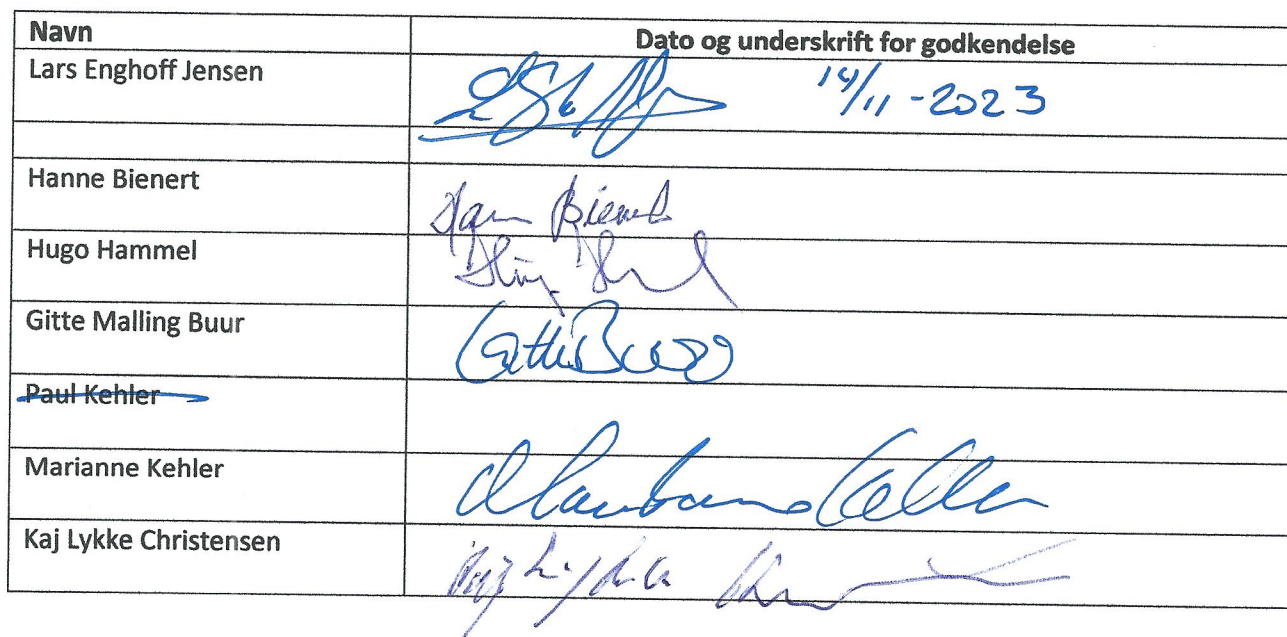 Navn
Dato og underskrift for godkendelse
Lars Enghoff Jensen
14/11-2023
Hanne Bienert
Hugo Hammel
Gitte Malling Buur
Gitte Buur
Paul Kehler
Marianne Kehler
Kaj Lykke Christensen